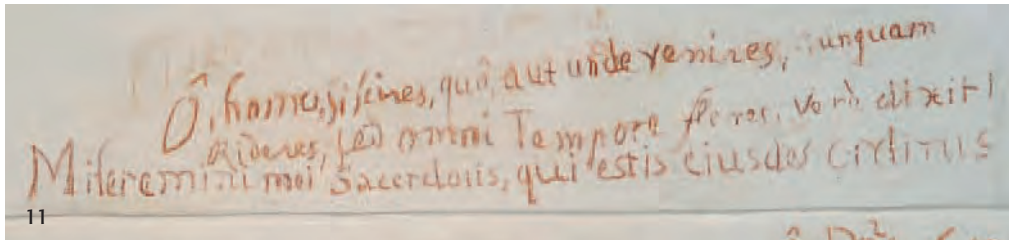 Ô, homo, si scires, quò, aut unde venires, nunquam
Rideres, sed omni Tempore fleres. Verè dixit!
Miseremini mei Sacerdotis, qui estis
11